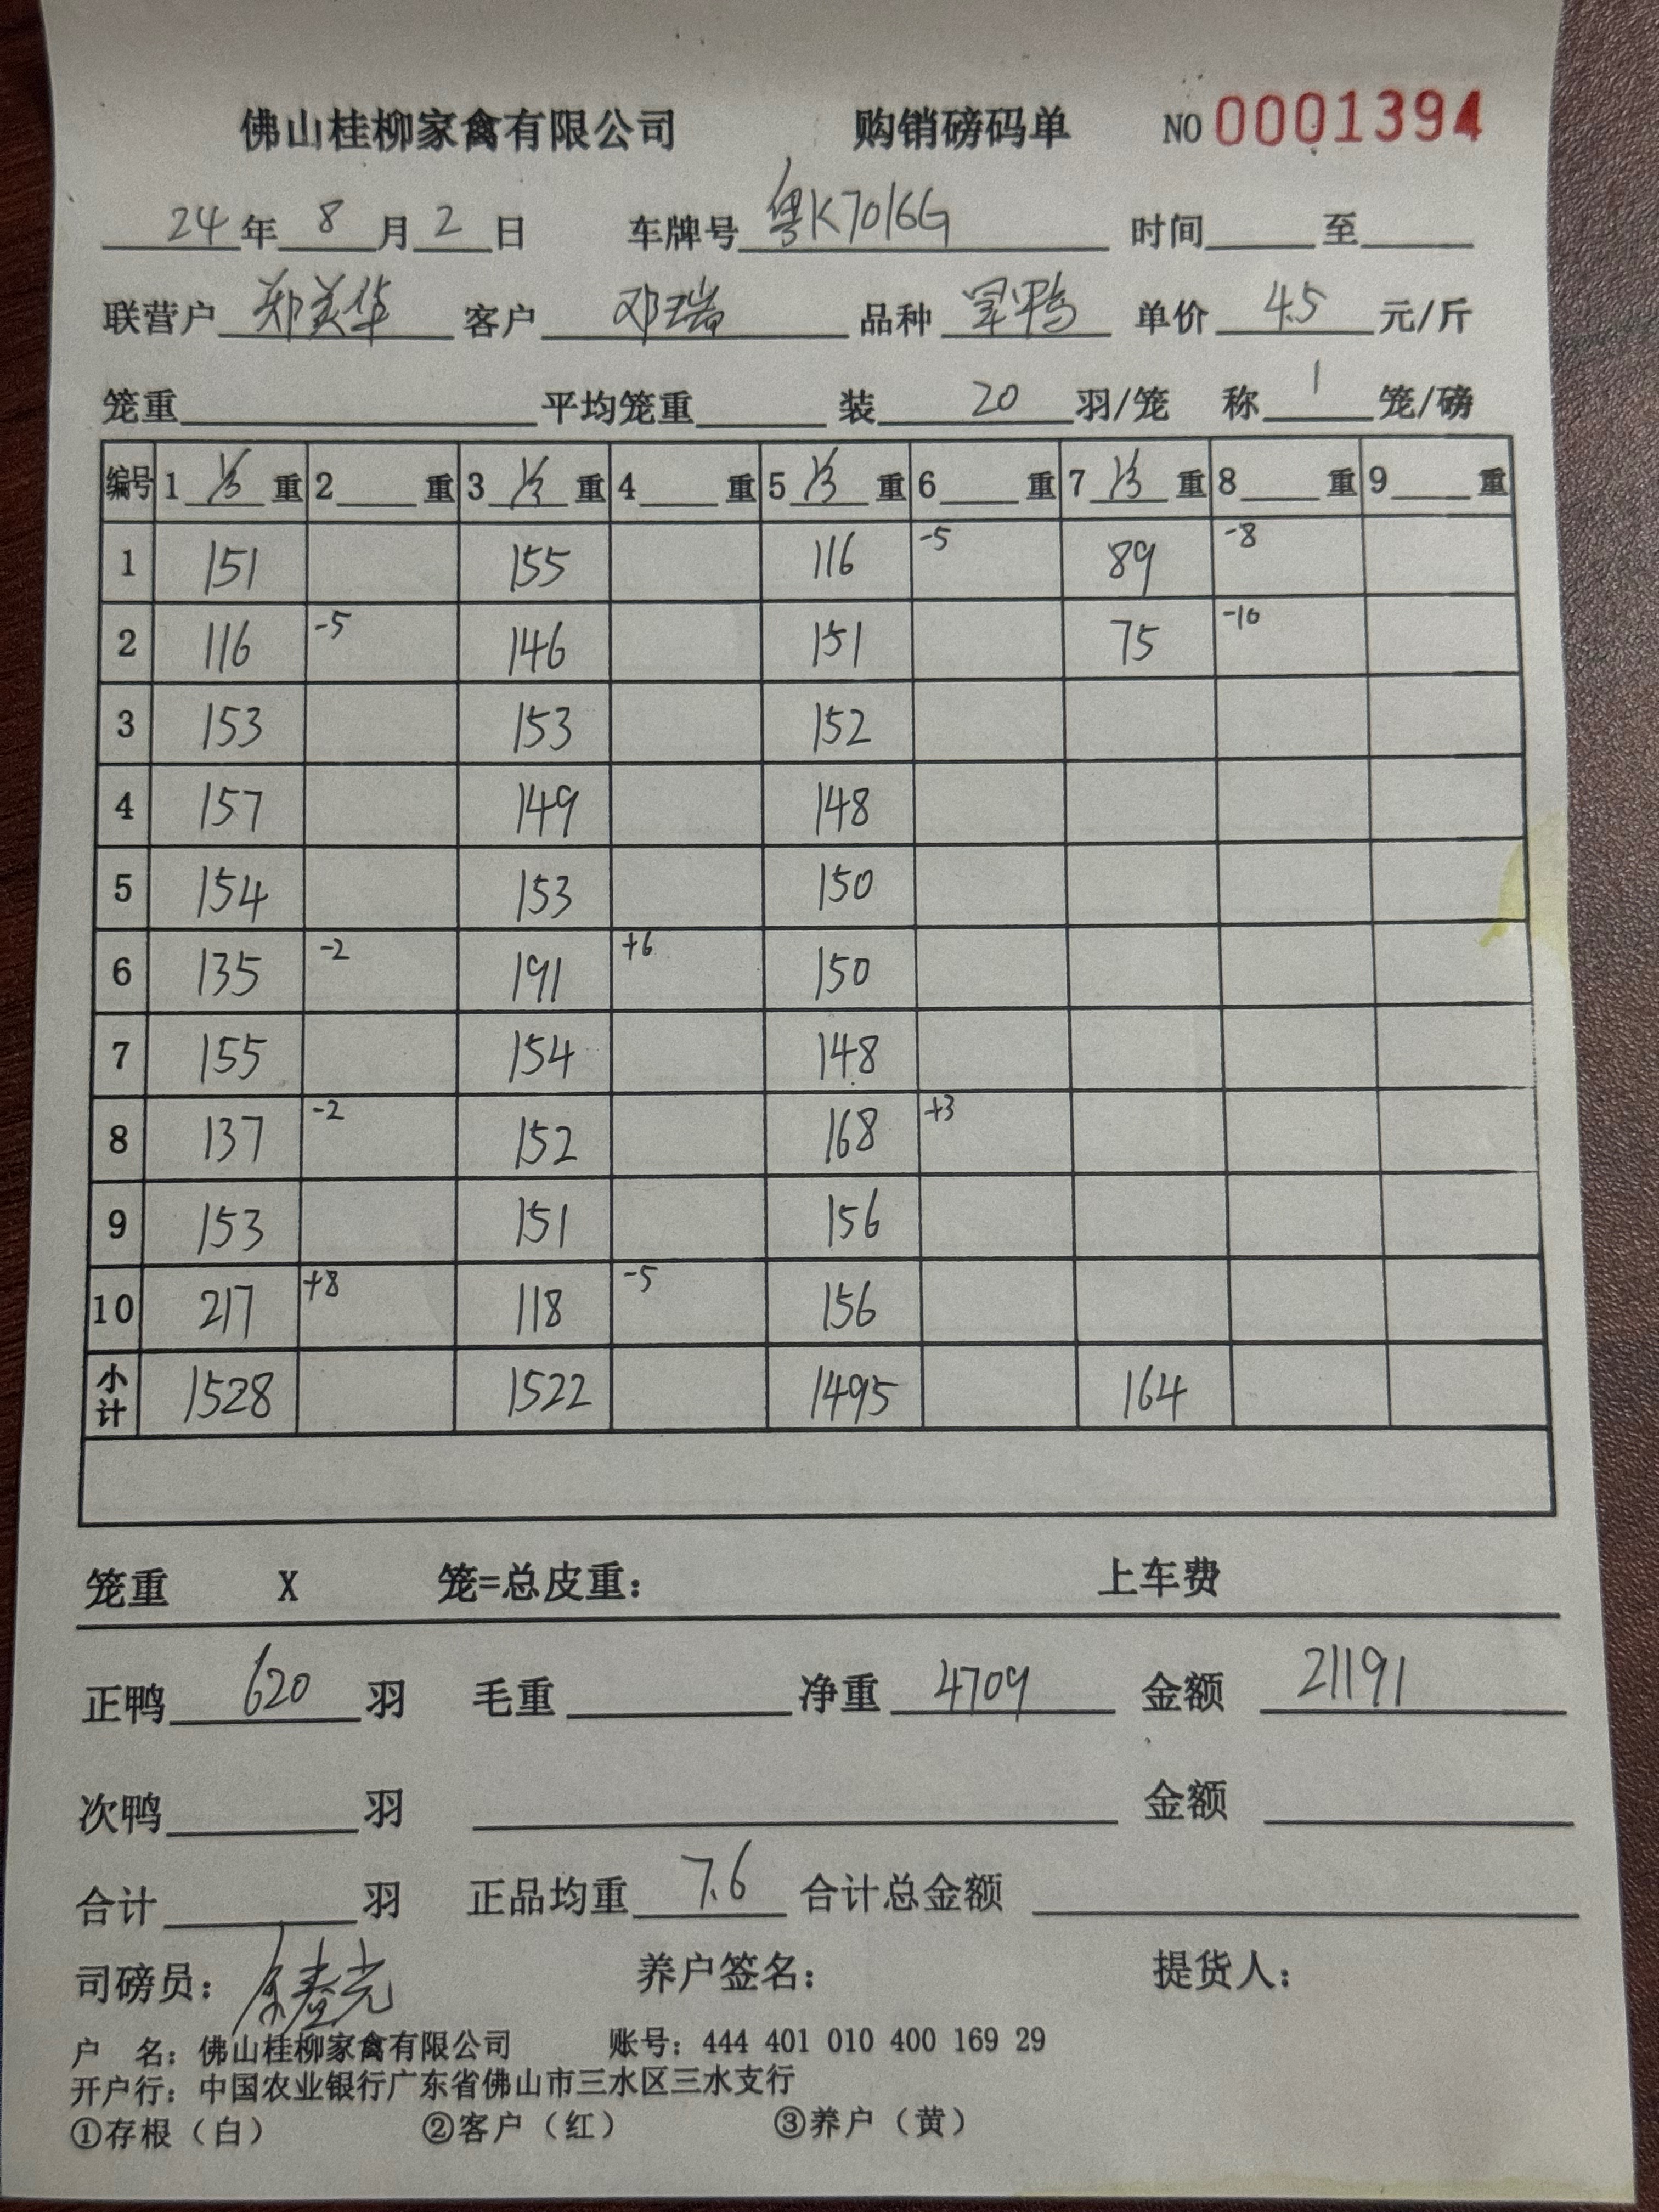 佛山桂柳家禽有限公司 购销磅码单 NO 0001394
24年8月2日 车牌号 粤K7016G 时间 至
联营户 郑美华 客户 邓瑞 品种 鸭 单价 4.5 元/斤
笼重 平均笼重 装 20 羽/笼 称 1 笼/磅
编号 1 重 2 重 3 重 4 重 5 重 6 重 7 重 8 重 9 重
1 151 155 116 -5 89 -8
2 116 -5 146 151 75 -10
3 153 153 152
4 157 149 148
5 154 153 150
6 135 -2 191 +6 150
7 155 154 148
8 137 -2 152 168 +3
9 153 151 156
10 217 +8 118 -5 156
小计 1528 1522 1495 164
笼重 X 笼=总皮重: 上车费
正鸭 620 羽 毛重 净重 4709 金额 21191
次鸭 羽 金额
合计 羽 正品均重 7.6 合计总金额
司磅员: 养户签名: 提货人:
户 名: 佛山桂柳家禽有限公司 账号: 444 401 010 400 169 29
开户行: 中国农业银行广东省佛山市三水区三水支行
①存根（白） ②客户（红） ③养户（黄）